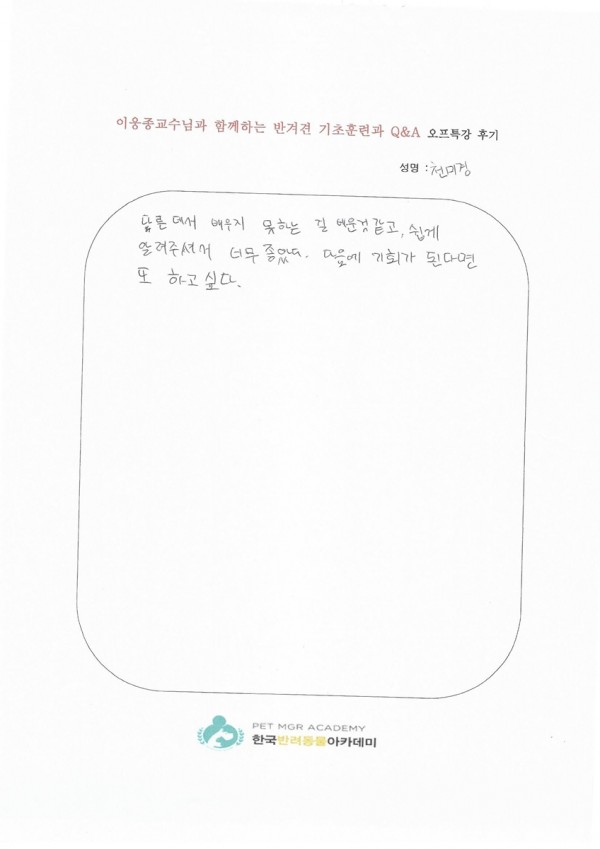 이웅종교수님과 함께하는 반겨견 기초훈련과 Q&A 오프특강 후기
성명 : 천미경
다른데서 배우지 못하는 걸 배운것같고, 쉽게
알려주셔서 너무 좋았다. 다음에 기회가 된다면
또 하고싶다.
PET MGR ACADEMY
한국반려동물아카데미